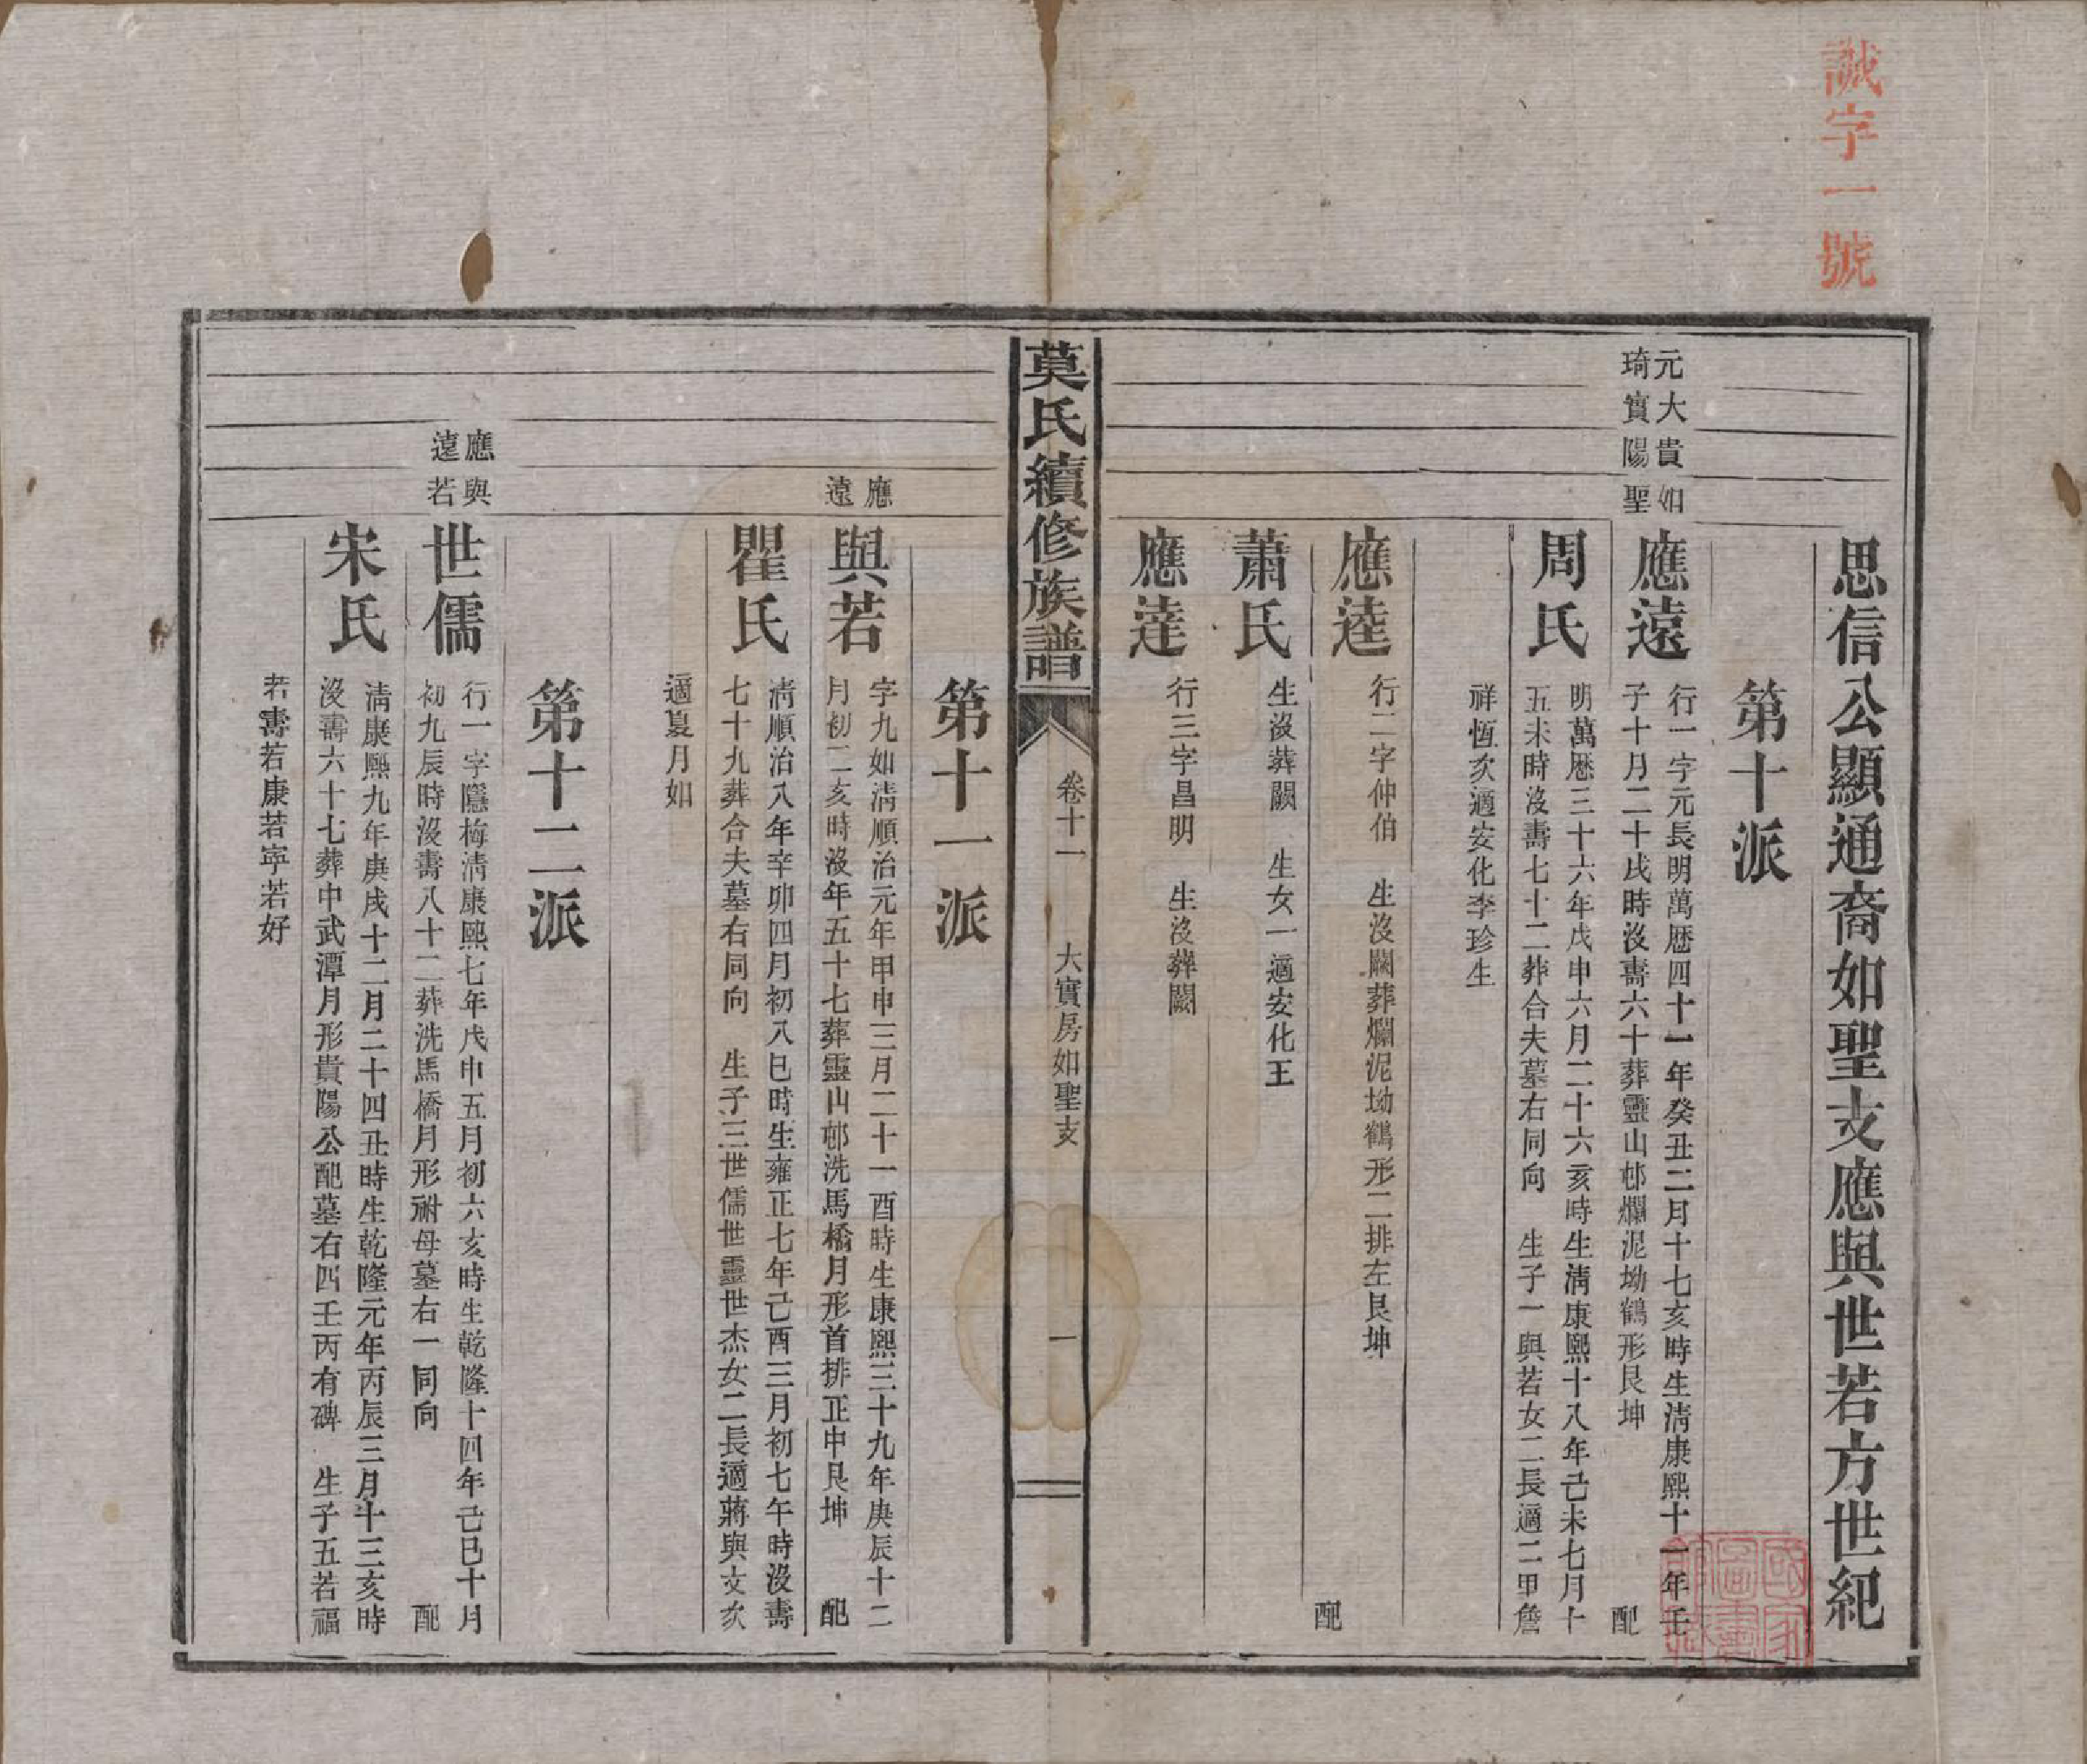 誠字一號
思信公顯通裔如聖支應與世若方世紀
第十派
元大貴如
琦實陽聖
應遠
行一字元長明萬歷四十一年癸丑二月十七亥時生淸康熙十一年壬
子十月二十戌時沒壽六十葬靈山邨爛泥坳鶴形艮坤 配
周氏
明萬歷三十六年戊申六月二十六亥時生淸康熙十八年己未七月十
五未時沒壽七十二葬合夫墓右同向 生子一與若女二長適二甲詹
祥恆次適安化李珍生
應逵
行二字仲伯 生沒闕葬爛泥坳鶴形二排左艮坤 配
蕭氏
生沒葬闕 生女一適安化王
應達
行三字昌明 生沒葬闕
莫氏續修族譜
卷十一
大實房如聖支
一
第十一派
應
遠
與若
字九如淸順治元年甲申三月二十一酉時生康熙三十九年庚辰十二
月初二亥時沒年五十七葬靈山邨洗馬橋月形首排正中艮坤 配
瞿氏
淸順治八年辛卯四月初八巳時生雍正七年己酉三月初七午時沒壽
七十九葬合夫墓右同向 生子三世儒世靈世杰女二長適蔣與文次
適夏月如
第十二派
應與
遠若
世儒
行一字隱梅淸康熙七年戊申五月初六亥時生乾隆十四年己巳十月
初九辰時沒壽八十二葬洗馬橋月形祔母墓右一同向 配
宋氏
淸康熙九年庚戌十二月二十四丑時生乾隆元年丙辰三月十三亥時
沒壽六十七葬中武潭月形貴陽公配墓右四壬丙有碑 生子五若福
若壽若康若寧若好